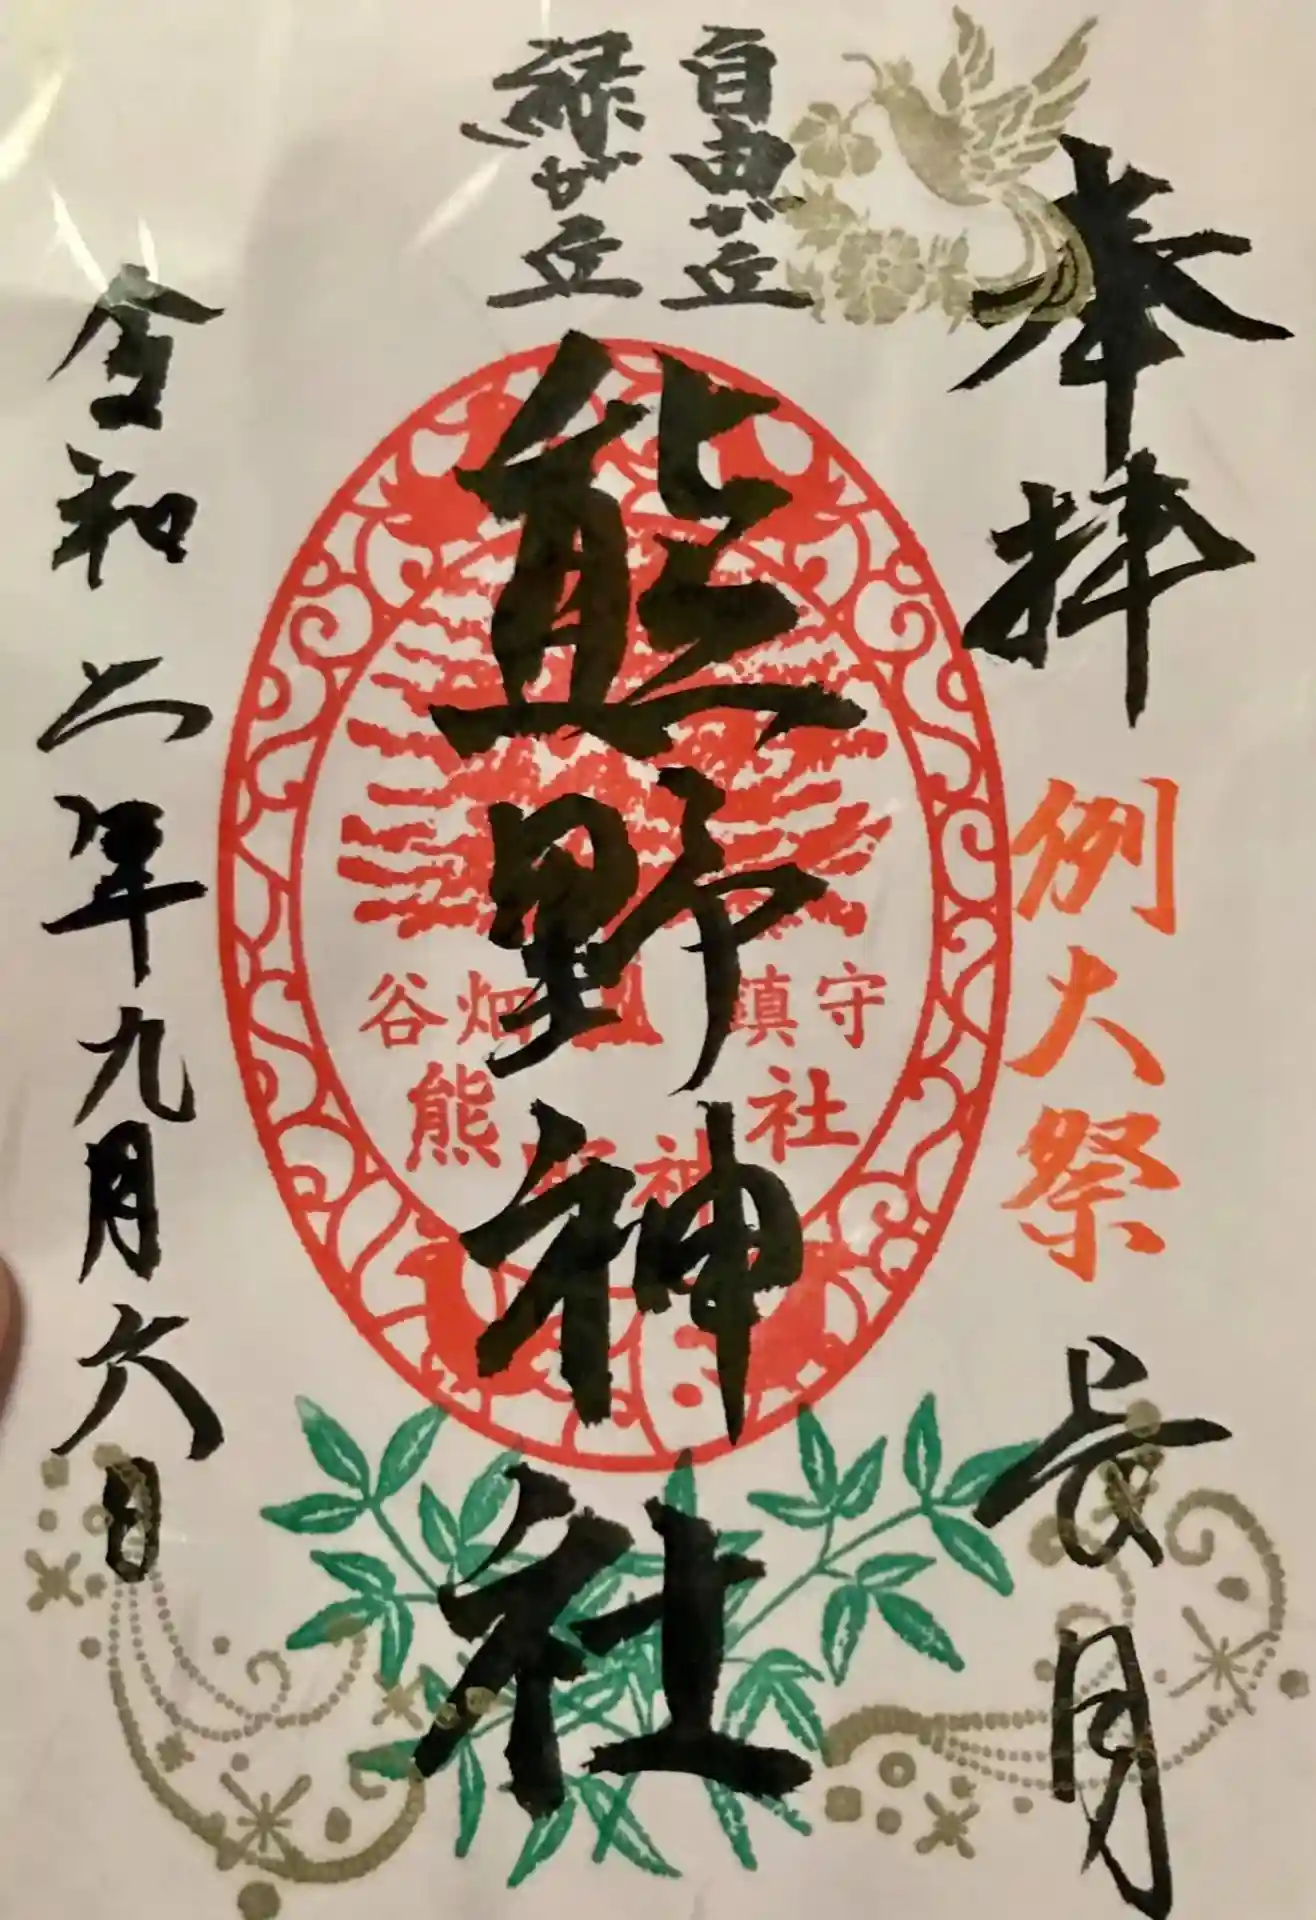 奉拝 例大祭 長月
自由が丘
緑が丘
熊野神社
谷畑 鎮守
熊野神社
令和二年九月六日